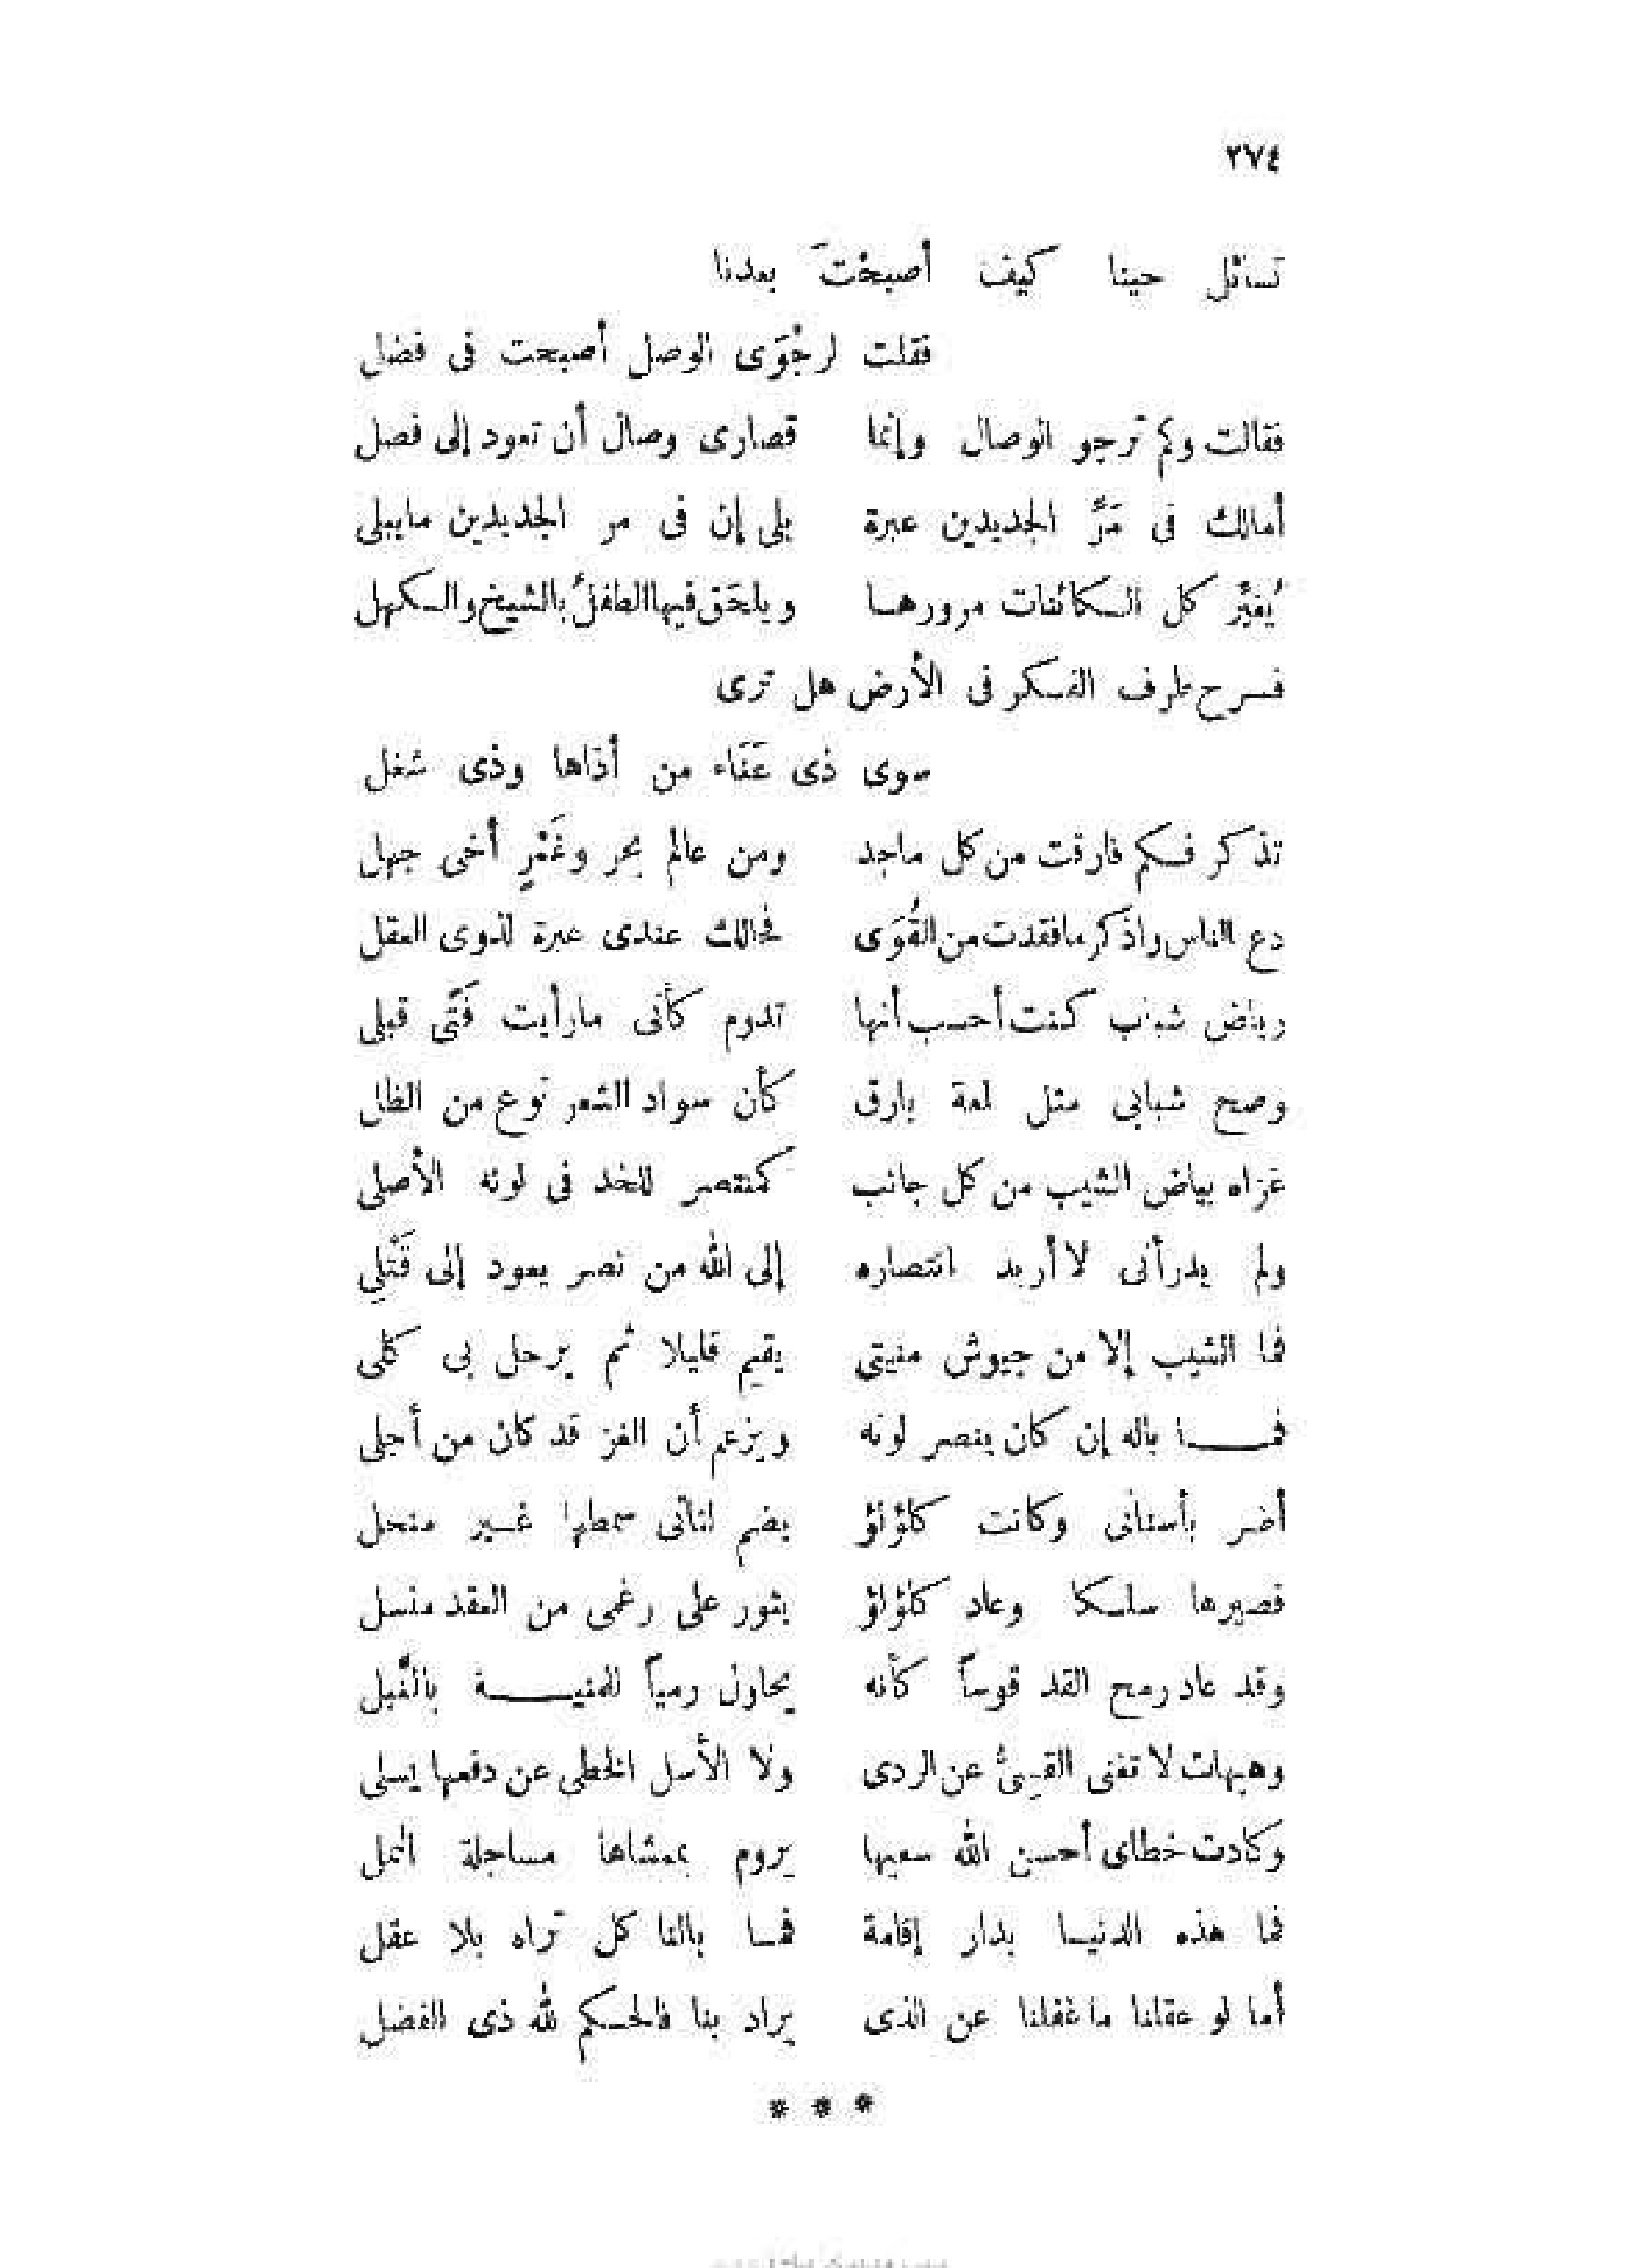 ٢٧٤
تسائل حينا كيف أصبحْتَ بعدنا
فقلت لرجْوَى الوصل أصبحت فى فضل
فقالت وكم ترجو الوصال وإنما قصارى وصال أن تعود إلى فصل
أمالك فى مَرِّ الجديدين عبرة بلى إن فى مر الجديدين مايبلى
يُغيِّر كل الـكائنات مرورهـا ويلحَق فيها الطفلُ بالشيخ والـكهل
فسرح طرف الفـكر فى الأرض هل ترى
سوى ذى عَنَاء من أذاها وذى شغل
تذكر فـكم فارقت من كل ماجد ومن عالم بحر وغَمْرٍ أخى جهل
دع الناس واذكر مافقدت من القُوَى فحالك عندى عبرة لذوى العقل
رياض شباب كنت أحسب أنها تدوم كأنى مارأيت فَتًى قبلى
وصح شبابى مثل لمعة بارق كأن سواد الشعر نوع من الظل
غزاه بياض الشيب من كل جانب كمنتصر للخد فى لونه الأصلى
ولم يدر أنى لا أريد انتصاره إلى الله من نصر يعود إلى قَتْلِي
فما الشيب إلا من جيوش منيتى يقيم قليلا ثم يرحل بى كلى
فمـــا باله إن كان ينصر لونه ويزعم أن الغز قد كان من أجلى
أضر بأسنانى وكانت كلؤلؤ يضم لثاتى سمطها غـير منحل
فصيرها سلـكا وعاد كلؤلؤ يثور على رغمى من العقد منسل
وقد عاد رمح القد قوساً كأنه يحاول رمياً للمنيـــة بالنَّبل
وهيهات لا تغنى القسِىُّ عن الردى ولا الأسل الخطى عن دفعها يسلى
وكادت خطاى أحسن الله سعيها يروم بممشاها مساجلة النمل
فما هذه الدنيـا بدار إقامة فمـا بالنا كل تراه بلا عقل
أما لو عقلنا ما غفلنا عن الذى يراد بنا فالحـكم لله ذى الفضل
* * *